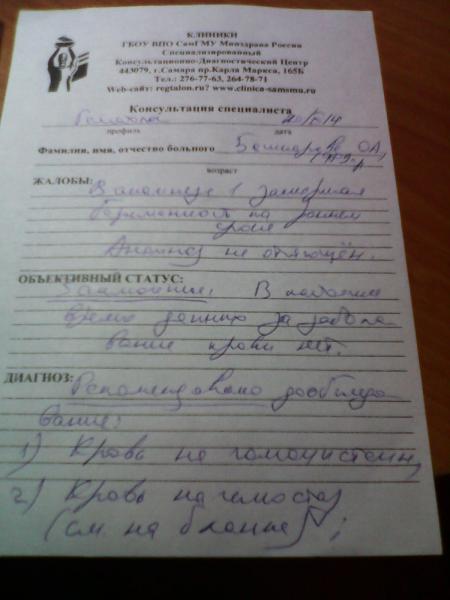 КЛИНИКИ
ГБОУ ВПО СамГМУ Минздрава России
Специализированный
Консультационно-Диагностический Центр
443079, г.Самара пр.Карла Маркса, 165Б
Тел.: 276-77-63, 264-78-71
Web-сайт: regtalon.ru? www.clinica-samsmu.ru
Консультация специалиста
Гематолог
профиль дата
Фамилия, имя, отчество больного
возраст
ЖАЛОБЫ: В анамнезе 1 замершая
беременность на раннем
сроке
Анамнез не отягощён.
ОБЪЕКТИВНЫЙ СТАТУС:
Заключение: В настоящее
время данных за заболе
вание крови нет.
ДИАГНОЗ: Рекомендовано дообследо
вание:
1) Кровь на гомоцистеин,
2) Кровь на гемостаз
(см. на бланке);